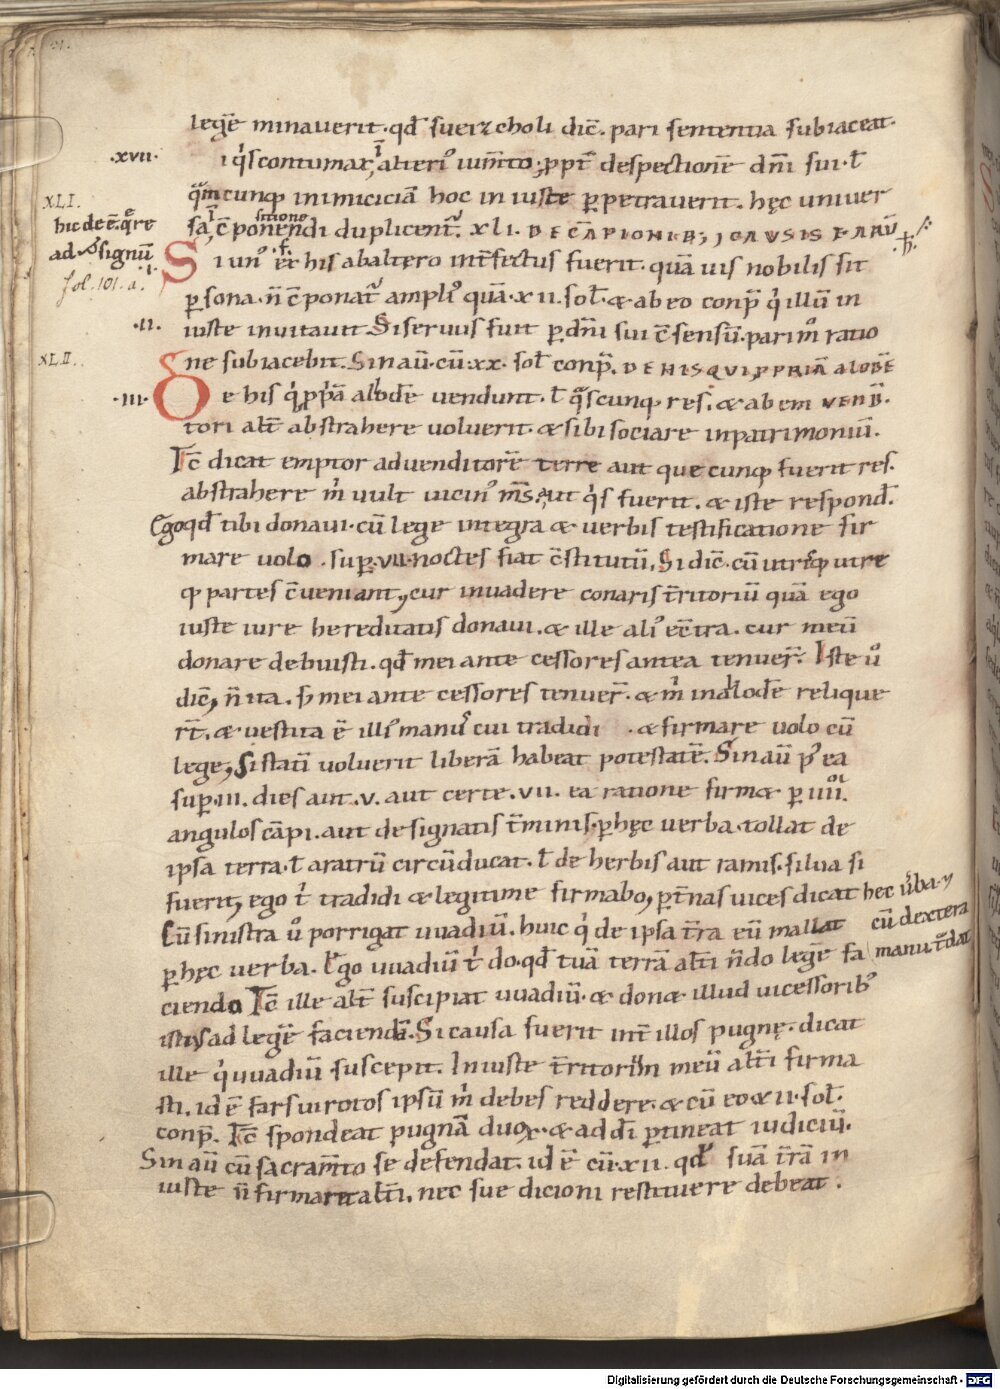 legē minauerit. qđ suerzcholi dic̄. pari sententia subiaceat.
.xvii. i q̇s contumax, alteriꝰ ium̄to, ꝓpt̄ despectionē dn̄i sui. ł
XLI. q̄mcunqꝫ inimiciciā hoc in iuste ꝑpetrauerit. hęc uniuer
hic de ē. q̄re sa, c̄ponendi duplicent᷒. XLI. DE CĀPIONIBꝫ
sitione
ad signū Si unꝰ ex his ab altero int̄fectus fuerit. quā uis nobilis sit
fol. 101. a. ꝑsona. n̄ c̄ponat᷒ ampliꝰ quā. xii. sol̄. & ab eo conp̄ q̇ illū in
.ii. iuste inuitauit. Si seruus fuit ꝑ dn̄i sui c̄sensū. pari m̊ ratio
XLII. ne subiacebit. Sin aū. cū. xx. sol̄ conp̄. DE HIS QUI PPRIĀ ALODĒ
.iii. De his q̇ ꝓpͥā alodē uendunt. ł q̄scunqꝫ res. & ab em VENĐ.
tori alt̄ abstrahere uoluerit. & sibi sociare in patrimoniū.
Tc̄ dicat emptor ad uenditorē terre aut que cunqꝫ fuerit res.
abstrahere m̍ uult uicinꝰ m̄s, aut q̇s fuerit. & iste respond̄.
Ego qđ tibi donaui. cū lege integra & uerbis testificatione fir
mare uolo. suꝑ. vii. noctes fiat c̄stitutū. Si dic̄. cū utriqꝫ utre
qꝫ partes c̄ueniant, cur inuadere conaris t̄ritoriū quā ego
iuste iure hereditatis donaui. & ille aliꝰ ec̄tra. cur meū
donare debuisti. qđ mei ante cessores antea tenuer̄. Iste ů
dic̄, n̄ ita. s̄ mei ante cessores tenuer̄. & m̍ in alodē relique
rt̄. & uestita ē illiꝰ manꝰ cui tradidi . & firmare uolo cū
lege, Si statī uoluerit liberā habeat potestatē. Sin aū pꝰ ea
suꝑ. iii. dies aut. v. aut certe. vii. ea ratione firm&. ꝑ iiii.
angulos cāpi. aut designatis t̄minis. ꝑ hęc uerba. tollat de
ipsa terra. ł aratrū circūducat. ł de herbis aut ramis. silua si
fuerit, ego t̍ tradidi & legitime firmabo, ꝑ t̄nas uices dicat hec u̍ba.
Cū sinistra ů porrigat uuadiū. huic q̇ de ipsa t̄ra eū mallat cū dextera
ꝑ hęc uerba. Ego uuadiū t̍ do. qđ tuā terrā alt̄i n̄ do legē fa manu. t̄dat
ciendo Tc̄ ille alt̄ suscipiat uuadiū. & don& illud uicessoribꝰ
istiꝰ ad legē faciendā. Si causa fuerit int̄ illos pugnę. dicat
ille q̇ uuadiū suscepit. Iniuste t̄ritoriū meū alt̄i firma
sti. id ē farsuirotos ipsū m̍ debes reddere. & cū eo xii. sol̄.
conp̄. Tc̄ spondeat pugnā duoꝝ. & ad dī ꝑtineat iudiciū.
Sin aū cū sacram̄to se defendat. id ē cū. xii. qđ suā t̄rā in
iuste n̄ firmaret alt̄i. nec sue dicioni restituere debeat.
Digitalisierung gefördert durch die Deutsche Forschungsgemeinschaft - DFG